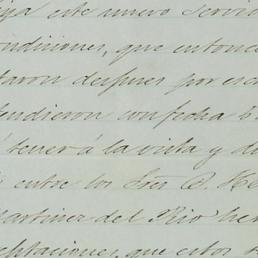 este nuevo servic
ondiciones, que entonce
taron despues por esc
endieron con fecha
tener á la vista y d
entre los Sres D.
Martinez del Rio her
eptaciones, que estos